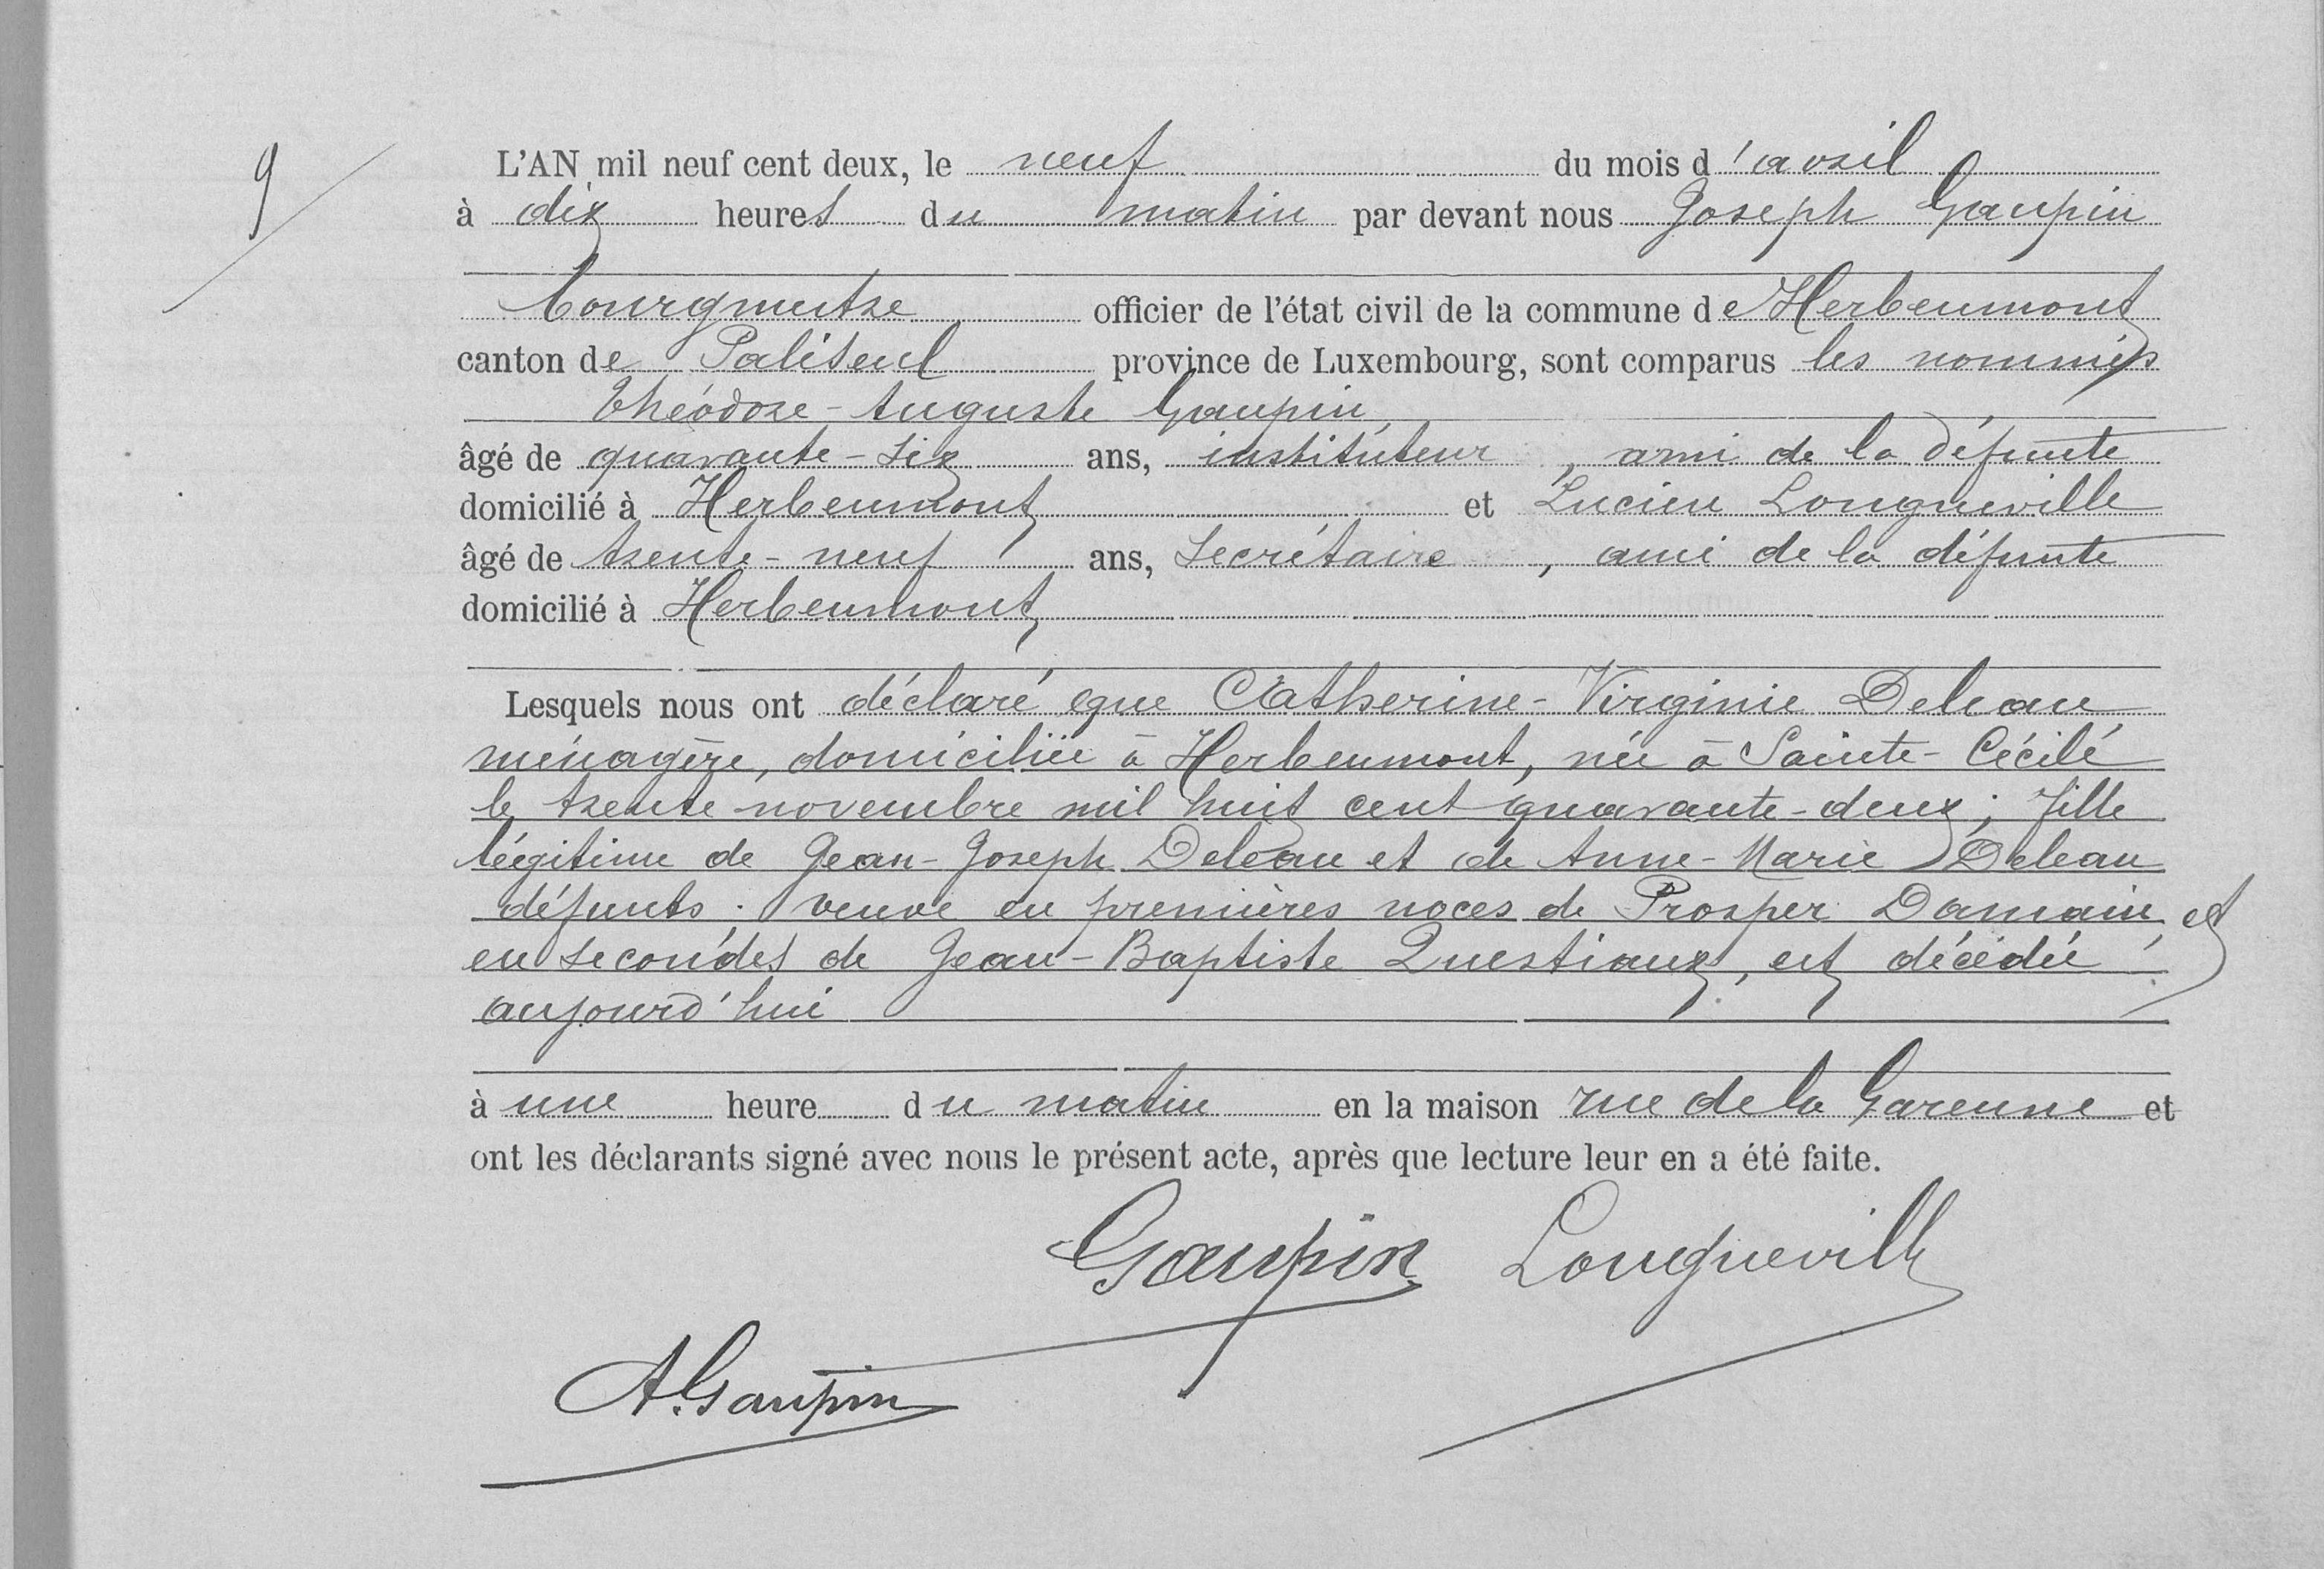 9
L'AN mil neuf cent deux, le neuf du mois d'avril
à dix heures du matin par devant nous Joseph Gaupin
bourgmestre officier de l'état civil de la commune de Herbeumont
canton de Paliseul province de Luxembourg, sont comparus les nommés
Théodore-Auguste Gaupin
âgé de quarante-six ans, instituteur, ami de la défunte
domicilié à Herbeumont et Lucien Longueville
âgé de trente-neuf ans, secrétaire, ami de la défunte
domicilié à Herbeumont
Lesquels nous ont déclaré que Catherine-Virginie Deleau
ménagère, domiciliée à Herbeumont, née à Sainte-Cécile
le trente novembre mil huit cent quarante-deux; fille
légitime de Jean-Joseph Deleau et de Anne-Marie Deleau
défunts. veuve en premières noces de Prosper Damain et
en secondes de Jean-Baptiste Questiaux, est décédée
aujourd'hui
à une heure du matin en la maison rue de la Garenne et
ont les déclarants signé avec nous le présent acte, après que lecture leur en a été faite.
Gaupin Longueville
A. Gaupin